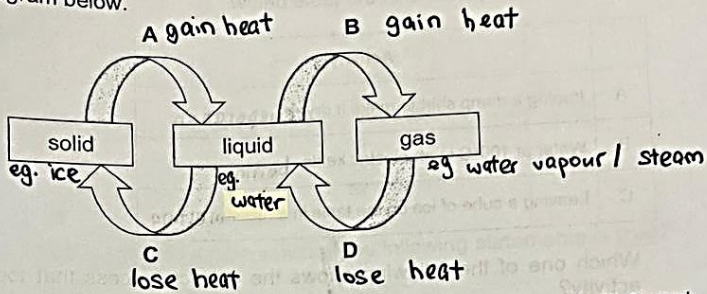 below.
A gain heat
B gain heat
solid
liquid
gas
eg. ice
eg.
water
eg water vapour / steam
C
lose heat
D
lose heat